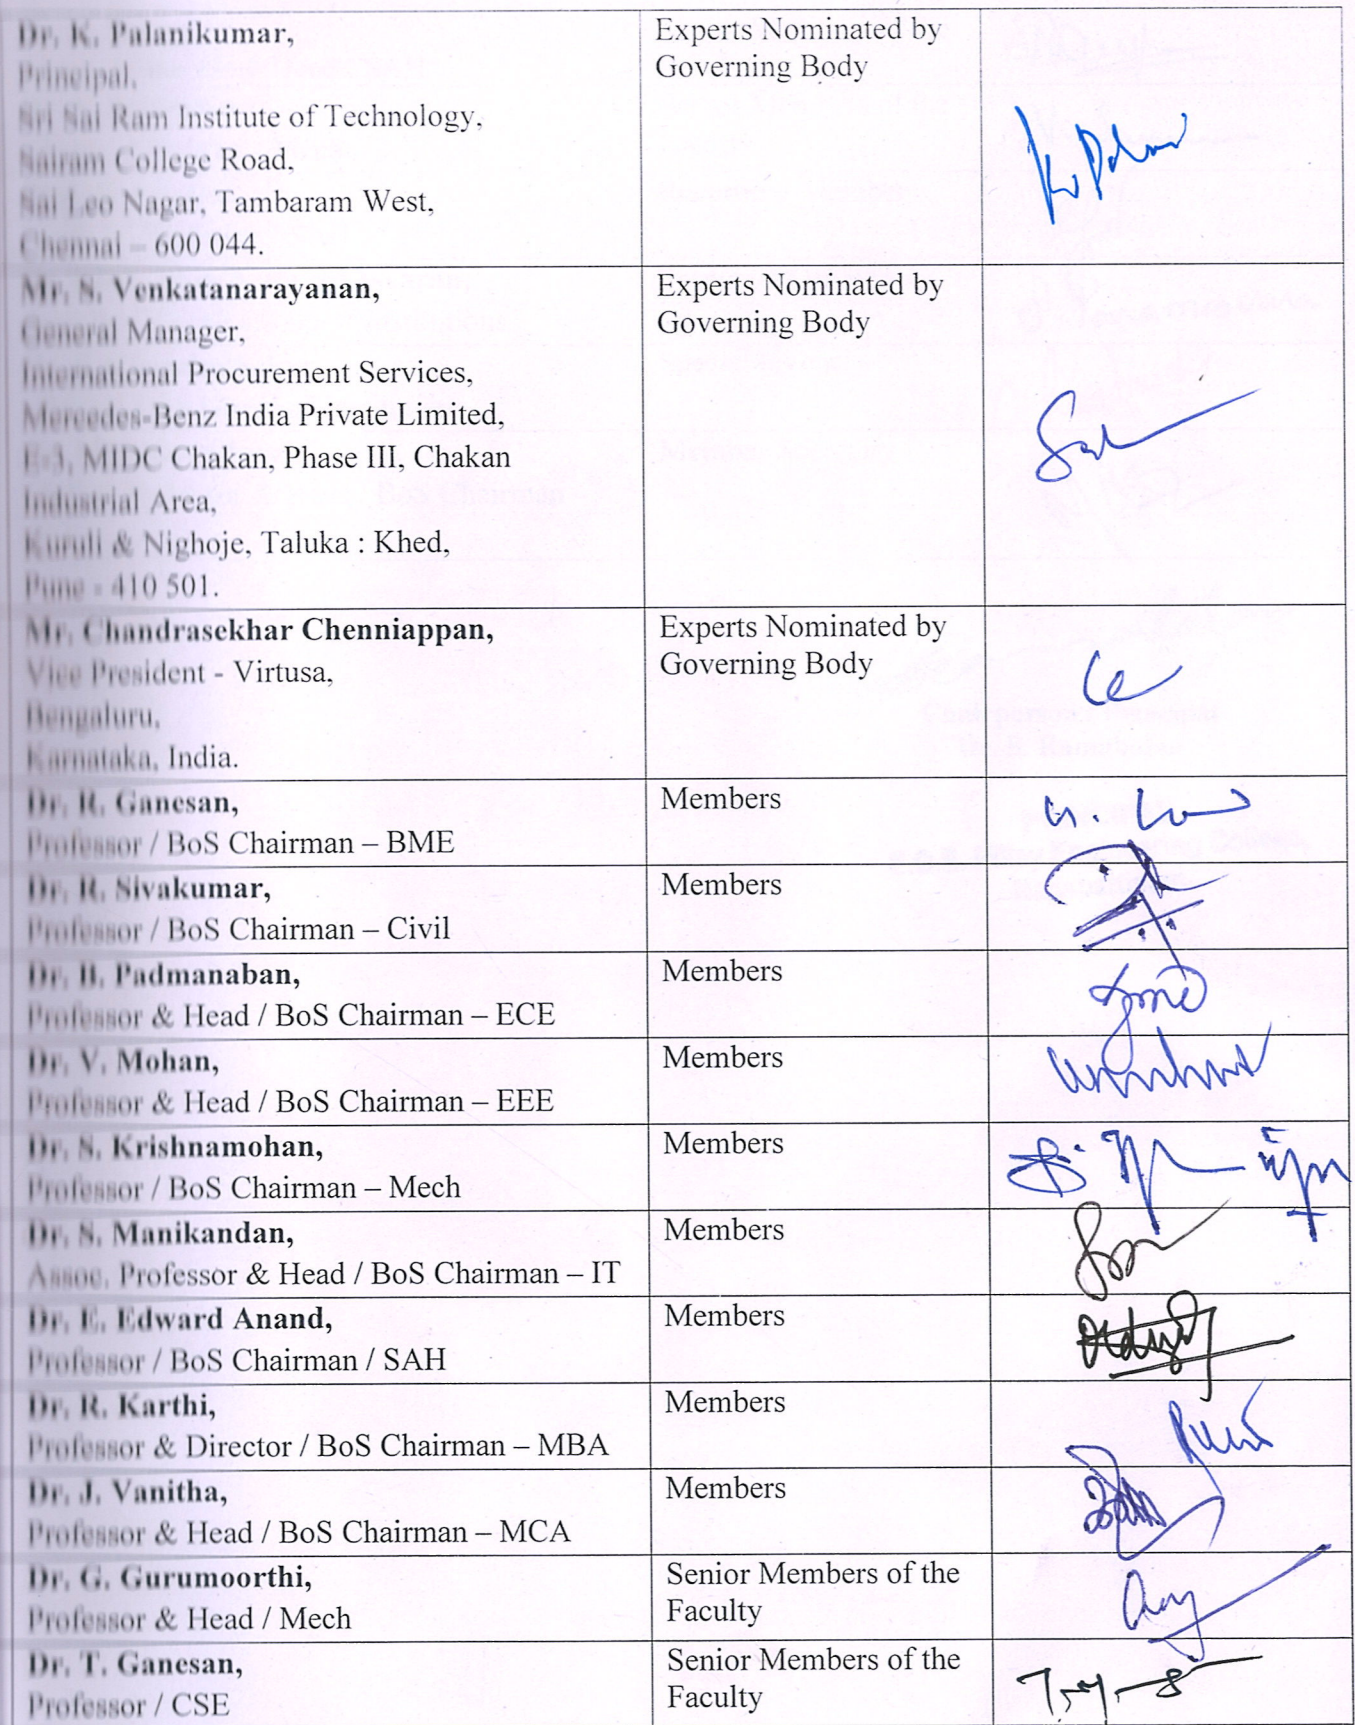 Dr. K. Palanikumar,
Principal,
Sri Sai Ram Institute of Technology,
Sairam College Road,
Sai Leo Nagar, Tambaram West,
Chennai – 600 044.
Experts Nominated by
Governing Body
Mr. S. Venkatanarayanan,
General Manager,
International Procurement Services,
Mercedes-Benz India Private Limited,
E-3, MIDC Chakan, Phase III, Chakan
Industrial Area,
Kuruli & Nighoje, Taluka : Khed,
Pune - 410 501.
Experts Nominated by
Governing Body
Mr. Chandrasekhar Chenniappan,
Vice President - Virtusa,
Bengaluru,
Karnataka, India.
Experts Nominated by
Governing Body
Dr. R. Ganesan,
Professor / BoS Chairman – BME
Members
Dr. R. Sivakumar,
Professor / BoS Chairman – Civil
Members
Dr. B. Padmanaban,
Professor & Head / BoS Chairman – ECE
Members
Dr. V. Mohan,
Professor & Head / BoS Chairman – EEE
Members
Dr. S. Krishnamohan,
Professor / BoS Chairman – Mech
Members
Dr. S. Manikandan,
Assoc. Professor & Head / BoS Chairman – IT
Members
Dr. E. Edward Anand,
Professor / BoS Chairman / SAH
Members
Dr. R. Karthi,
Professor & Director / BoS Chairman – MBA
Members
Dr. J. Vanitha,
Professor & Head / BoS Chairman – MCA
Members
Dr. G. Gurumoorthi,
Professor & Head / Mech
Senior Members of the
Faculty
Dr. T. Ganesan,
Professor / CSE
Senior Members of the
Faculty